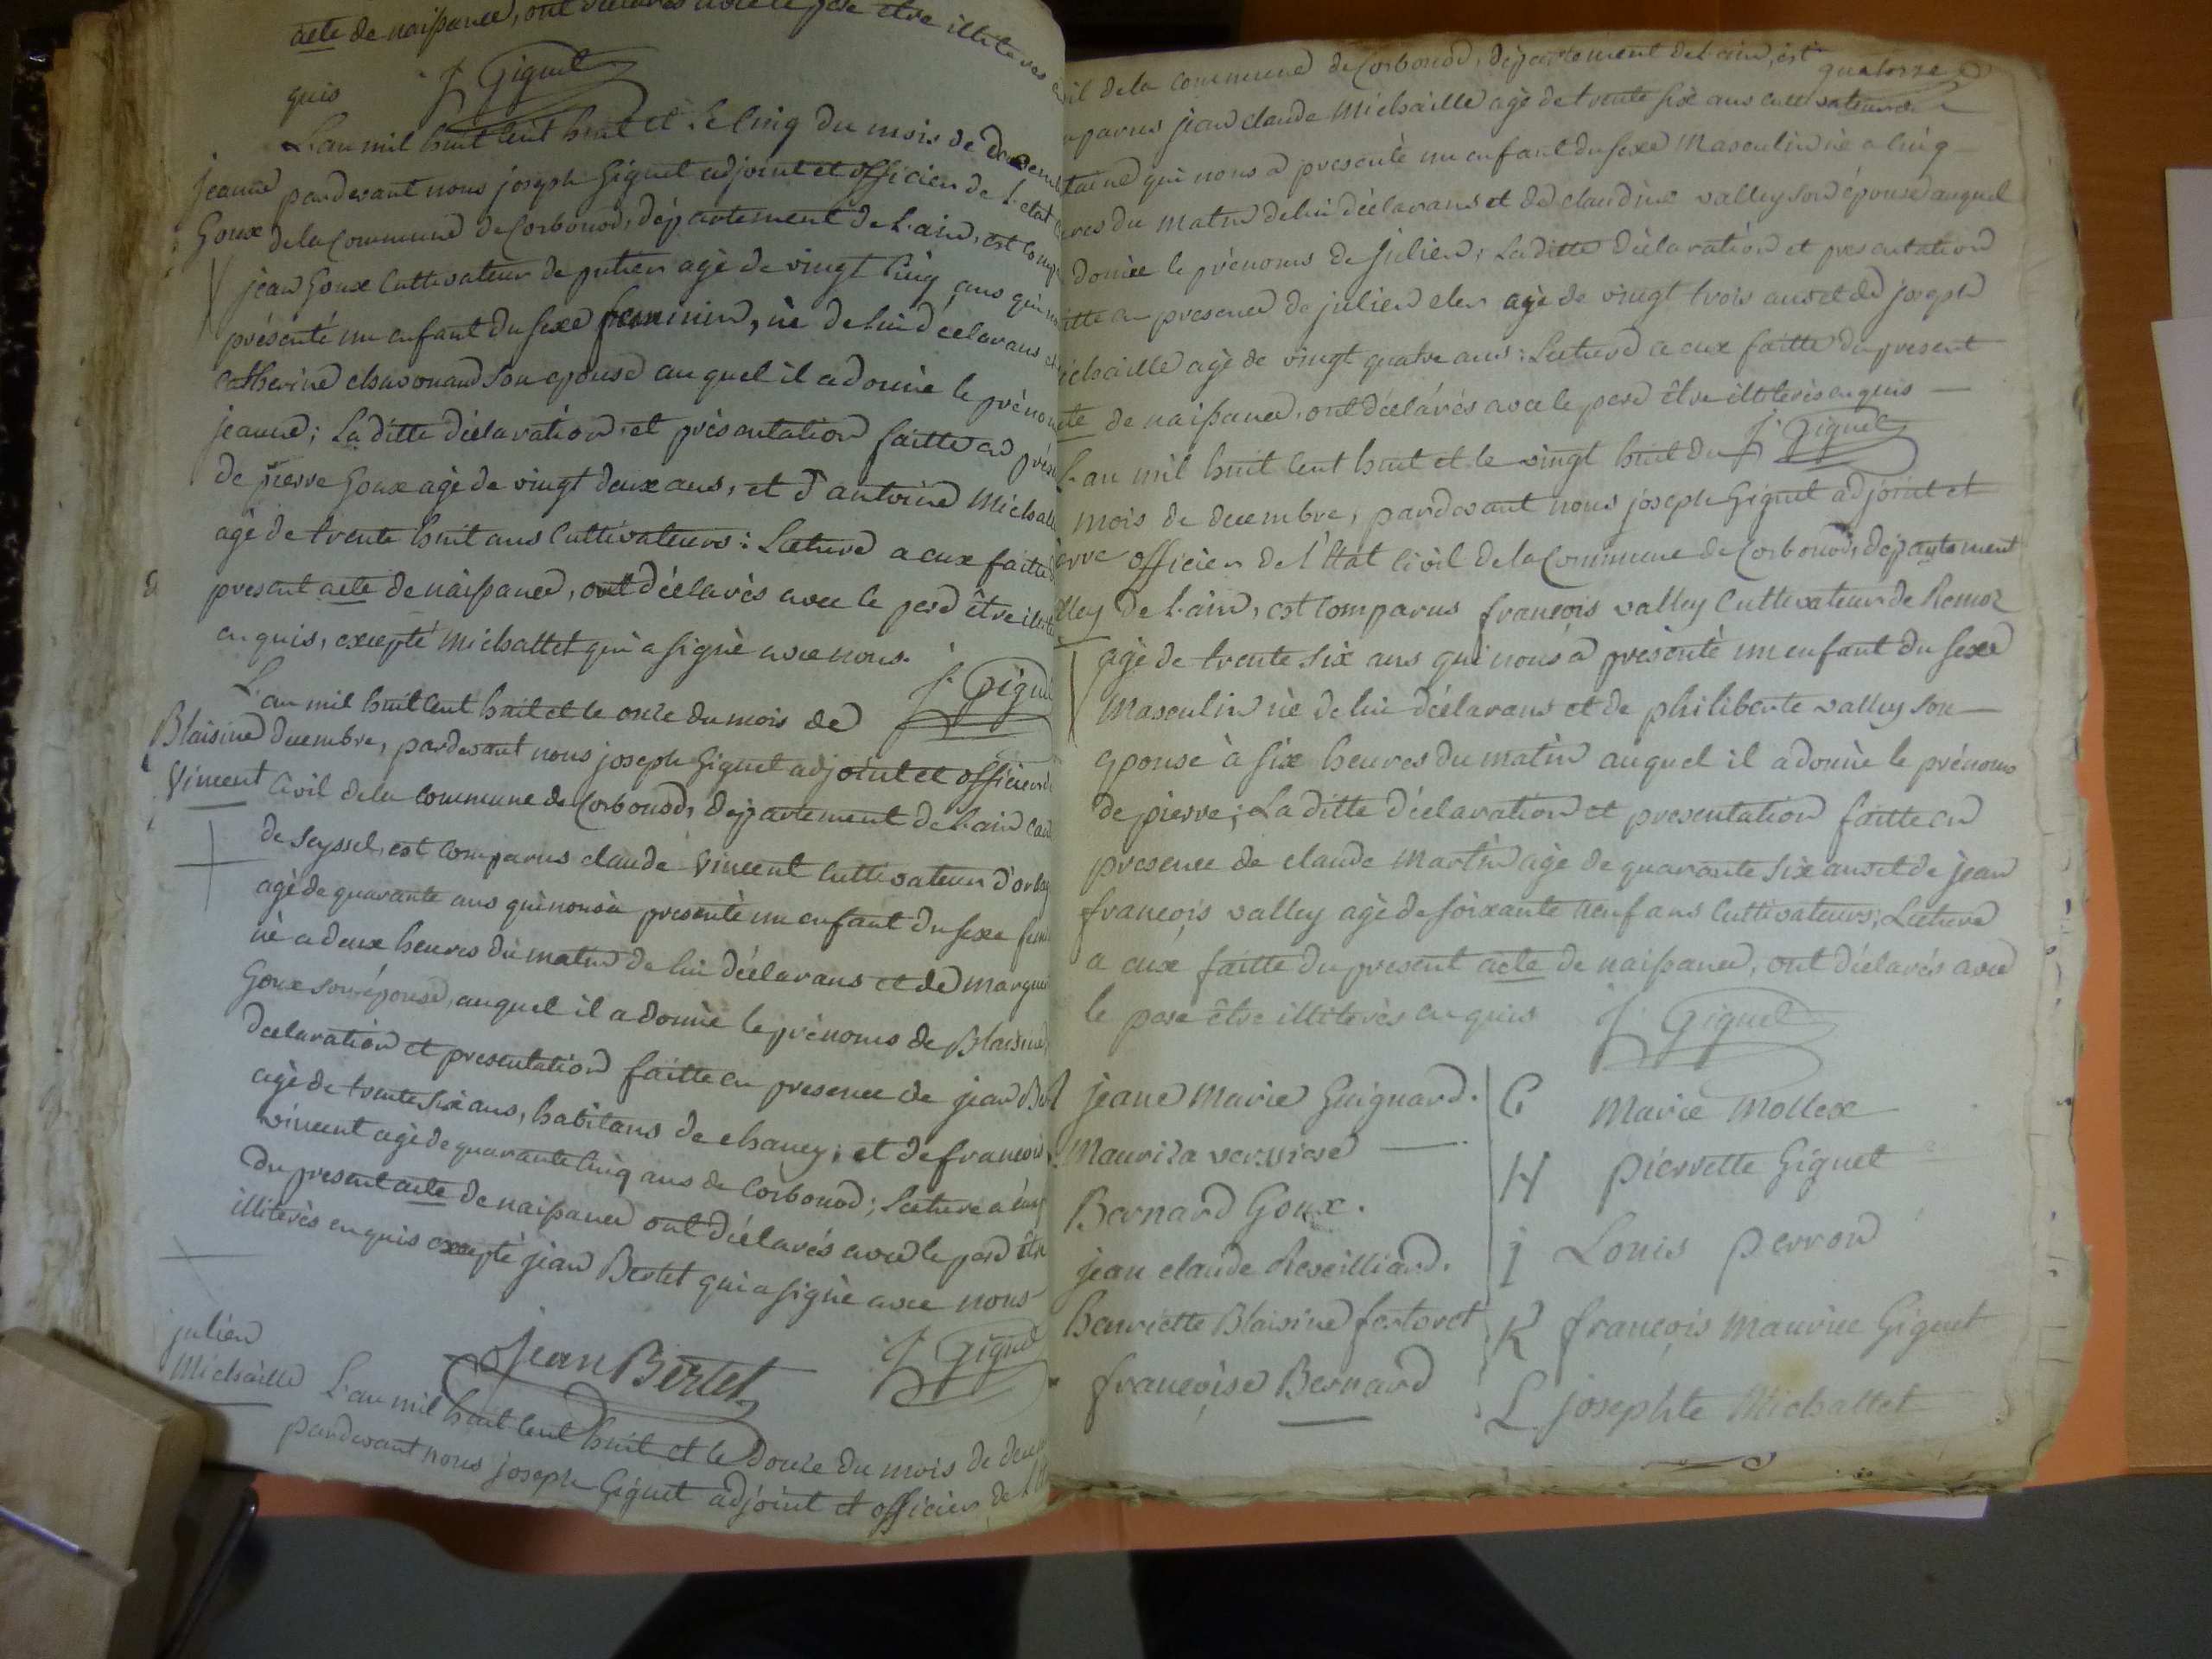 acte de naissance, ont déclarés avec le père être illiterés
quis J. Giguet
L'an mil huit cent huit et le cinq du mois de decem
jeanne Goux
pardevant nous joseph Giguet adjoint et officier de l'etat
de la Commune de Corbonod, département de l'ain, est comp
jean Goux cultivateur de agé de vingt cinq ans qui
présenté un enfant du sexe feminin, né de lui déclarans et
catherine son epouse auquel il a donné le prénom
jeanne; La ditte déclaration et présentation faitte en prés
de pierre Goux agé de vingt deux ans, et d'antoine Michall
agé de trente huit ans Cultivateurs: Lecture a eux faitte
present acte de naissance, ont déclarés avec le père être
enquis, excepté Michallet qui a signé avec nous.
J. Giguet
L'an mil huit cent huit et le onze du mois de
Blaisine Vincent
decembre, pardevant nous joseph Giguet adjoint et officier
Civil de la commune de Corbonod, departement de l'ain can
de seyssel, est comparus claude Vincent cultivateur
agé de quarante ans qui nous à presenté un enfant du sexe femi
né a deux heures du matin de lui déclarans et de margue
Goux son épouse, auquel il a donné le prénoms de Blaisine
declaration et presentation faitte en presence de jean Bert
agé de trente six ans, habitans de chaney; et de francois
vincent agé de quarante cinq ans de Corbonod; Lecture a
du present acte de naissance ont déclarés avec le père être
illiterés enquis excepté jean Bertet qui a signé avec nous
Jean Bertet J. Giguet
julien Michaille
L'an mil huit cent huit et le douze du mois de dece
pardevant nous joseph Giguet adjoint et officier de l'
quatorze
il de la commune de Corbonod, département de l'ain, est
parus jean claude Michaille agé de trente six ans cultivateur
qui nous a presenté un enfant du sexe Masculin né a cinq
res du matin de lui déclarans et de claudine valley son épouse auquel
donnée le prénoms de julien; La ditte déclaration et presentation
itte en presence de julien agé de vingt trois ans et de joseph
ichaille agé de vingt quatre ans: Lecture a eux faitte du present
cte de naissance, ont déclarés avec le père être illiterés enquis
J. Giguet
L'an mil huit cent huit et le vingt huit du
mois de decembre, pardevant nous joseph Giguet adjoint et
officier de l'Etat Civil de la Commune de Corbonod, departement
de l'ain, est comparus françois valley cultivateur de Remoz
agé de trente six ans qui nous a présenté un enfant du sexe
Masculin né de lui déclarans et de philiberte valley son
epouse à six heures du matin auquel il a donné le prénoms
de pierre; La ditte déclaration et presentation faitte en
presence de claude Martin agé de quarante six ans et de jean
françois valley agé de soixante neuf ans cultivateurs; Lecture
a eux faitte du present acte de naissance, ont déclarés avec
le père être illiterés enquis J. Giguet
jeane Marie Guignard.
Mauriza verssiere
Bernard Goux.
jean claude Reveilliard.
henriette Blaisine fertoret
françoise Bernard
G Marie Mollex
H pierrette Giguet
j Louis perron
K françois Maurice Giguet
L josephte Michallet